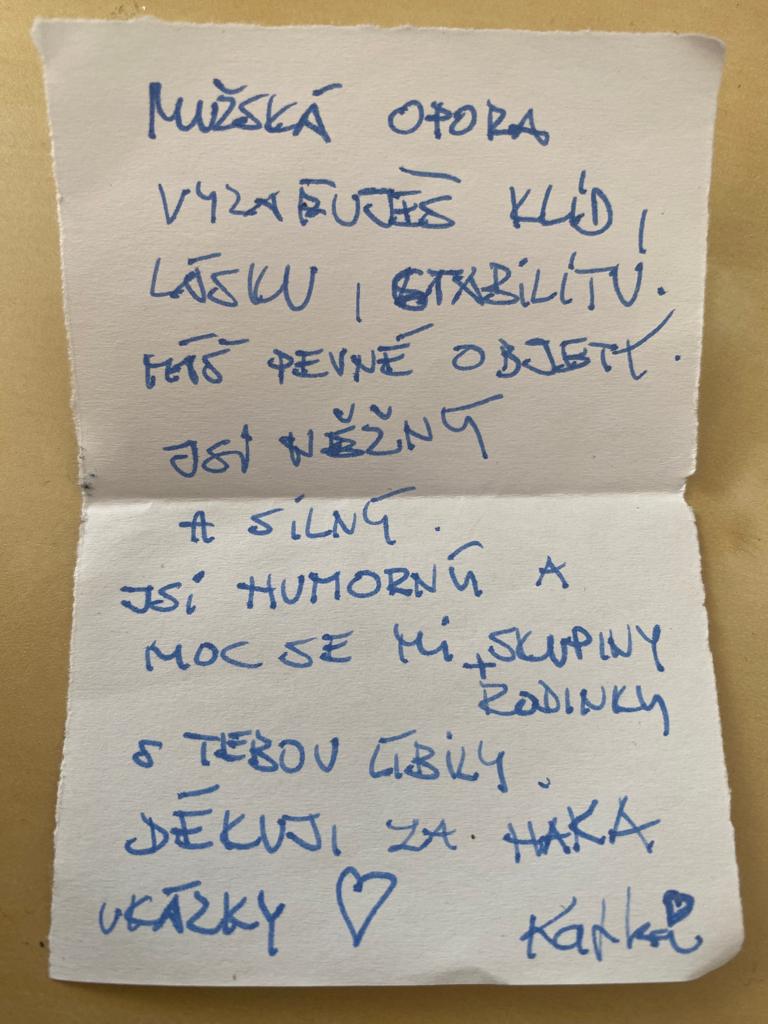 MUŽSKÁ OPORA
VYZAŘUJEŠ KLID,
LÁSKU, STABILITU.
MÁŠ PEVNÉ OBJETÍ.
JSI NĚŽNÝ
A SILNÝ.
JSI HUMORNÝ A
MOC SE MI SKUPINY
+ RODINKY
S TEBOU LÍBILY.
DĚKUJI ZA HAKA
UKÁZKY ♡
Katka